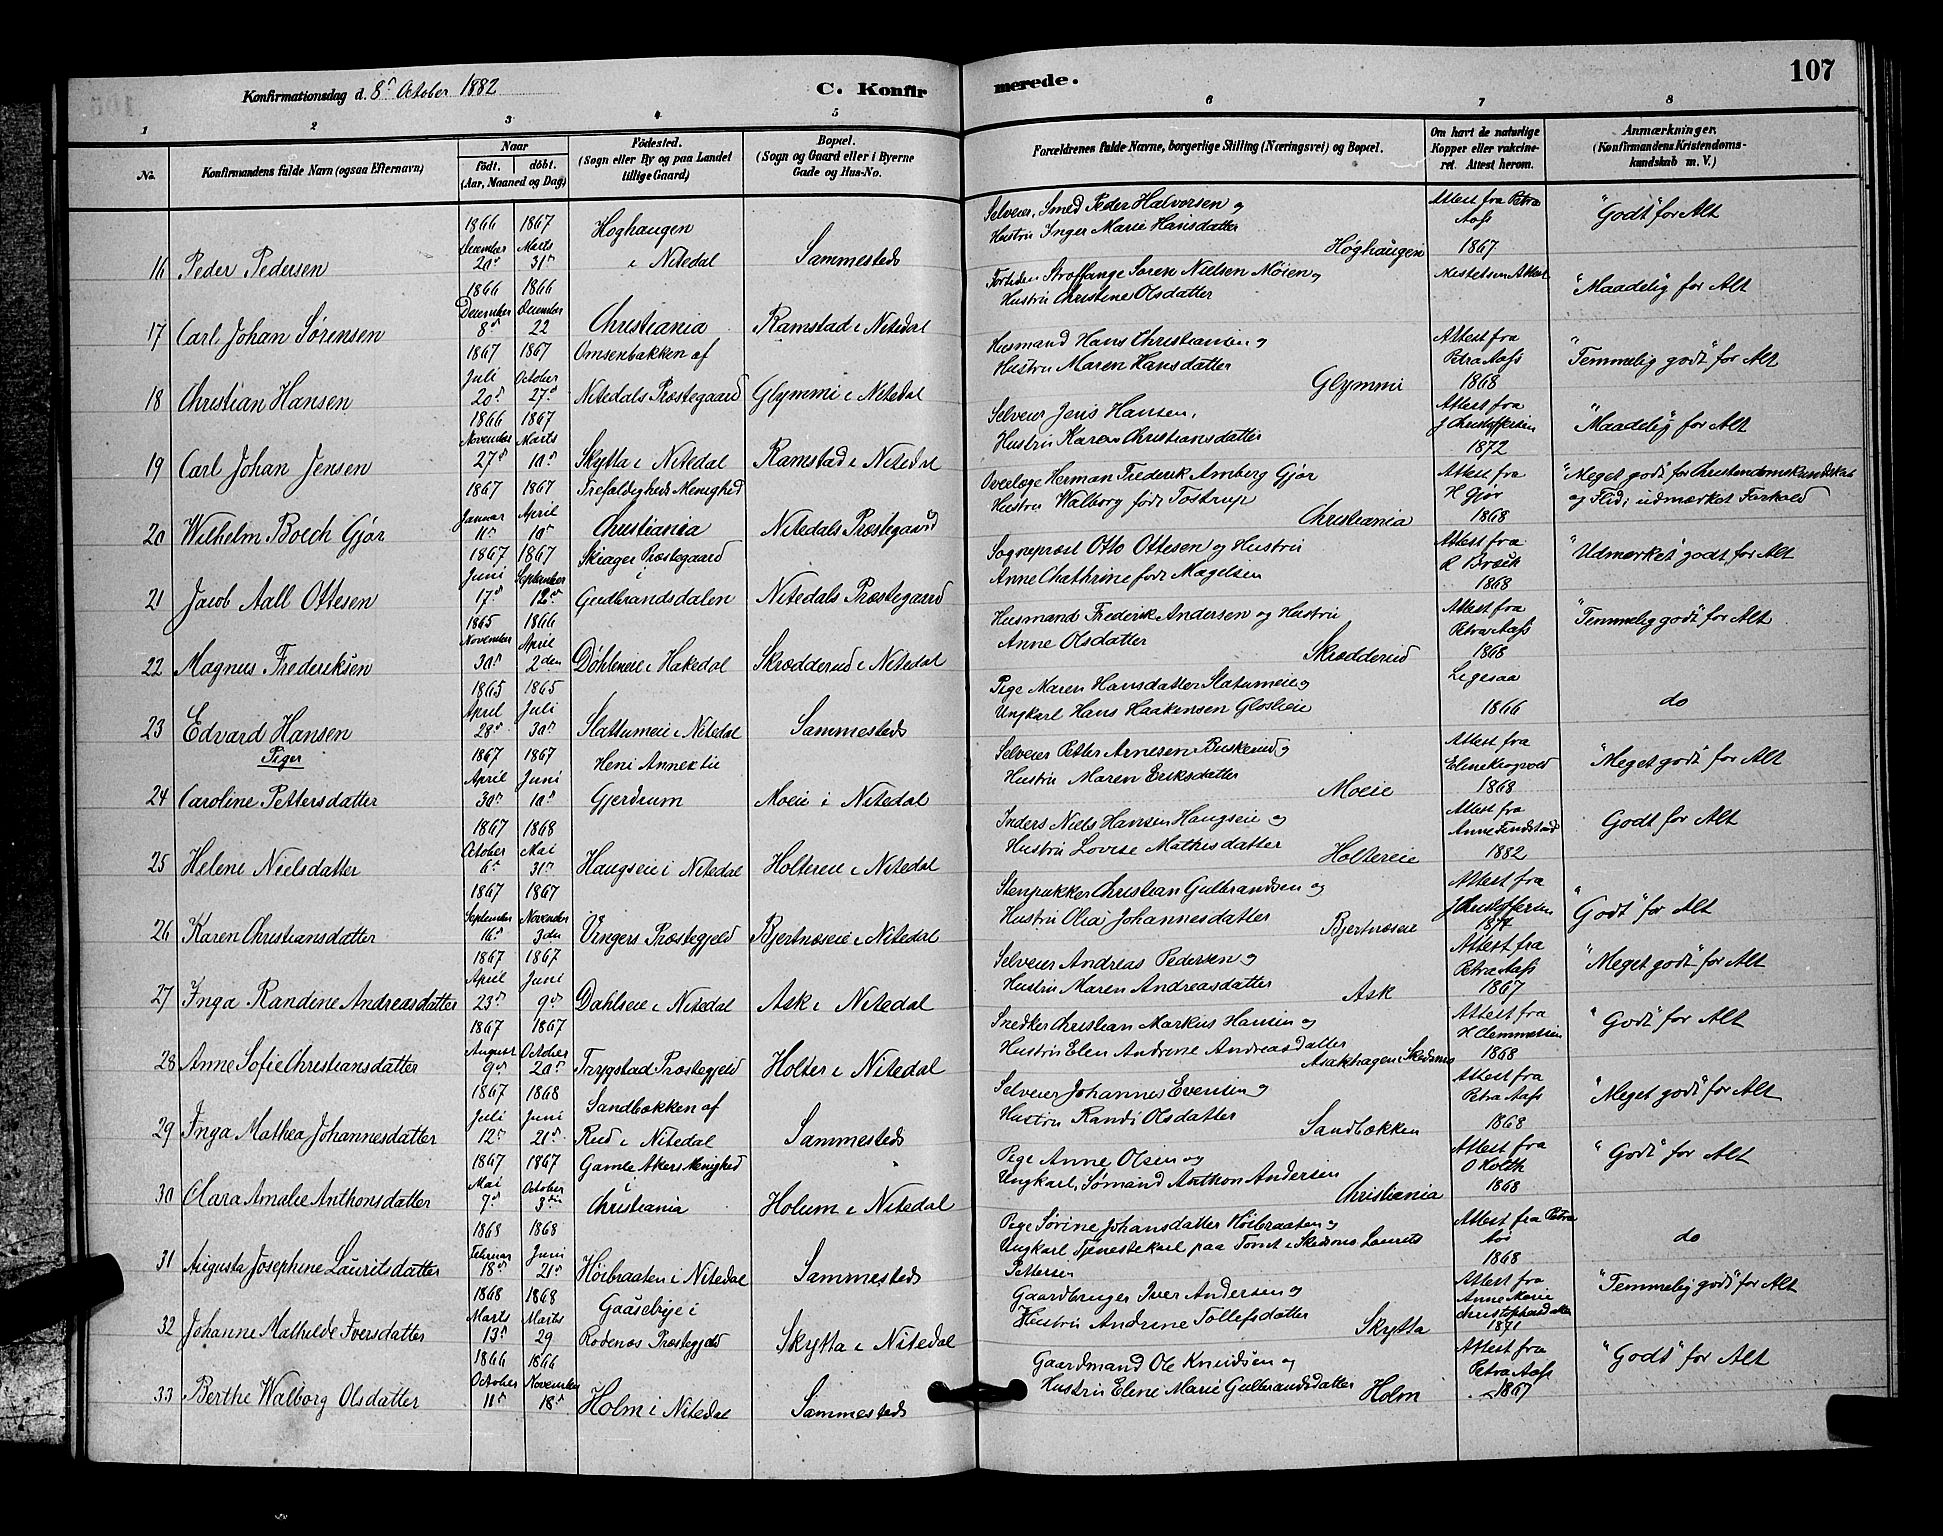 Konfirmationsdag d. 8de October 1882
C. Konfirmerede.
107
1 2 3 4 5 6 7 8
No.
Konfirmandens fulde Navn (ogsaa Efternavn)
Naar
födt. döbt.
(Aar, Maaned og Dag)
Födested.
(Sogn eller By og paa Landet
tillige Gaard)
Bopæl.
(Sogn og Gaard eller i Byerne
Gade og Hus-No.
Forældrenes fulde Navne, borgerlige Stilling (Næringsvei) og Bopæl.
Om havt de naturlige
Kopper eller vakcine-
ret. Attest herom.
Anmærkninger.
(Konfirmandens Kristendoms-
kundskab m. V.)
16 Peder Pedersen
1866 December 20de
1867 Marts 31te
Hoghaugen
i Nitedal
Sammesteds
Selveier, Smed Peder Halvorsen og
Hustru Inger Marie Hansdatter
Høghaugen
Attest fra Petra
Aass
1867
"Godt" for Alt
17 Carl Johan Sørensen
1866 December 8de
1866 December 22
Christiania
Ramstad i Nitedal
Straffange Søren Nielsen Moien og
Hustru Christine Olsdatter
Attest
"Maadelig for Alt
18 Christian Hansen
1867 Juli 20de
1867 October 27de
Omsenbakken af
Nitedals Præstegaard
Glymmi i Nitedal
Husmand Hans Christiansen og
Hustru Maren Hansdatter
Glymmi
Attest fra
Petra Aass
1868
"Temmelig godt" for Alt
19 Carl Johan Jensen
1866 November 27de
1867 Marts 10de
Skytta i Nitedal
Ramstad i Nitedal
Selveier Jens Hansen,
Hustru Karen Christiansdatter
Attest fra
J Christoffersen
1872
"Maadelig" for Alt
20 Wilhelm Boeck Gjør
1867 Januar 11te
1867 April 10de
Trefoldigheds Menighed
Christiania
Nitedals Præstegaard
Overlæge Herman Frederik Amberg Gjør
Hustru Walborg født Tostrup
Christiania
Attest fra
H Gjør
1868
"Meget godt" for Christendomskundskab
og Flid; udmærket Forhold
21 Jacob Aall Ottesen
1867 Juni 17de
1867 September 12de
Skiager Præstegaard
i
Gudbrandsdalen
Nitedals Præstegaard
Sognepræst Otto Ottesen og Hustru
Anne Chathrine født Magelsen
Attest fra
1868
"Udmærket" godt for Alt
22 Magnus Frederiksen
1865 November 30te
1866 April 2den
Døhleneie i Hakedal
Skrædderud i Nitedal
Husmand Frederik Andersen og Hustru
Anne Olsdatter
Skrædderud
Attest fra
Petra Aass
1868
"Temmelig godt" for Alt
23 Edvard Hansen
1865 April 28de
1865 Juli 30te
Slattumeie i Nitedal
Sammesteds
Pige Maren Hansdatter Slatumeie og
Ungkarl Hans Haakensen Gloslieie
Ligesaa
1866
do
Piger
24 Caroline Pettersdatter
1867 April 30te
1867 Juni 10de
Heni Annex til
Gjerdrum
Moeie i Nitedal
Selveier Petter Arnesen Buskerud og
Hustru Maren Eriksdatter
Moeie
Attest fra
Eline Kragvold
1868
"Meget godt" for Alt
25 Helene Nielsdatter
1867 October 6te
1868 Mai 31te
Haugseie i Nitedal
Holtereie i Nitedal
Inders Niels Hansen Haugseie og
Hustru Lovise Mathisdatter
Holtereie
Attest fra
Anne Findstad
1882
Godt for Alt
26 Karen Christiansdatter
1867 September 16de
1867 November 3die
Vingers Præstegjeld
Bjertnæseie i Nitedal
Stenpukker Christian Gulbrandsen og
Hustru Olia Johannesdatter
Bjertnæseie
Attest fra
J Christoffersen
1877
"Godt" for Alt
27 Inga Randine Andreasdatter
1867 April 23de
1867 Juni 9de
Dahlseie i Nitedal
Ask i Nitedal
Selveier Andreas Pedersen og
Hustru Maren Andreasdatter
Ask
Attest fra
Petra Aass
1867
"Meget godt" for Alt
28 Anne Sofie Christiansdatter
1867 August 9de
1867 October 20de
Trygstad Præstegjeld
Holter i Nitedal
Snedker Christian Markus Hansen og
Hustru Elen Andrine Andreasdatter
Asakhagen Skedsmo
Attest fra
H Clemmetsen
1868
"Godt" for Alt
29 Inga Mathea Johannesdatter
1867 Juli 12te
1868 Juni 21de
Sandbækken af
Rud i Nitedal
Sammesteds
Selveier Johannes Evensen og
Hustru Randi Olsdatter
Sandbækken
Attest fra
Petra Aass
1868
"Meget godt" for Alt
30 Clara Amalie Anthonsdatter
1867 Mai 7de
1867 October 3die
Gamle Akers Menighed
i
Christiania
Holum i Nitedal
Pige Anne Olsen og
Ungkarl, Sømand Anthon Andersen
Christiania
Attest fra
O Holth
1868
"Godt" for Alt
31 Augusta Josephine Lauritsdatter
1868 Februar 18de
1868 Juni 21de
Høibraaten i Nitedal
Sammesteds
Pige Sørine Johansdatter Høibraaten og
Ungkarl Tjenestekarl paa Tomt i Skedsmo Laurits
Pettersen
Attest fra Petra
Aas
1868
do
32 Johanne Mathilde Iversdatter
1868 Marts 13de
1868 Marts 29
Gaasebye i
Rødenæs Præstegjeld
Skytta i Nitedal
Gaardbruger Iver Andersen og
Hustru Andrine Tollefsdatter
Skytta
Attest fra
Anne Marie
Christophersdatter
1871
"Temmelig godt" for Alt
33 Berthe Walborg Olsdatter
1866 October 11te
1866 November 18de
Holm i Nitedal
Sammesteds
Gaardmand Ole Knudsen og
Hustru Elene Marie Gulbrandsdatter
Holm
Attest fra
Petra Aass
1867
"Godt" for Alt